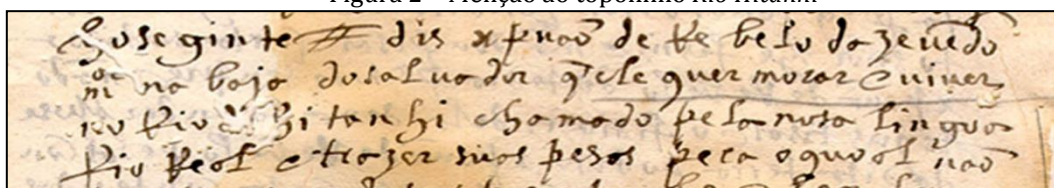 Figura 2 – Menção ao topônimo Rio Hitanhi
o seginte dis xpvaõ de Rebelo dazeuedo
mor na baja dosaluador q ele quer morar e uiuer
no Rio hitanhi chamado pela nosa lingoa
Rio Real e trazer suas pesas pera o quoal naõ